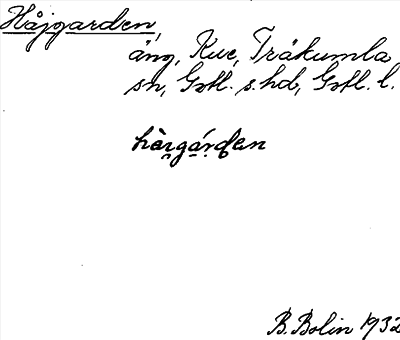 Håjgarden,
äng, Kue, Träkumla
sn, Gotl. s. hd, Gotl. l.
B. Bolin 1932